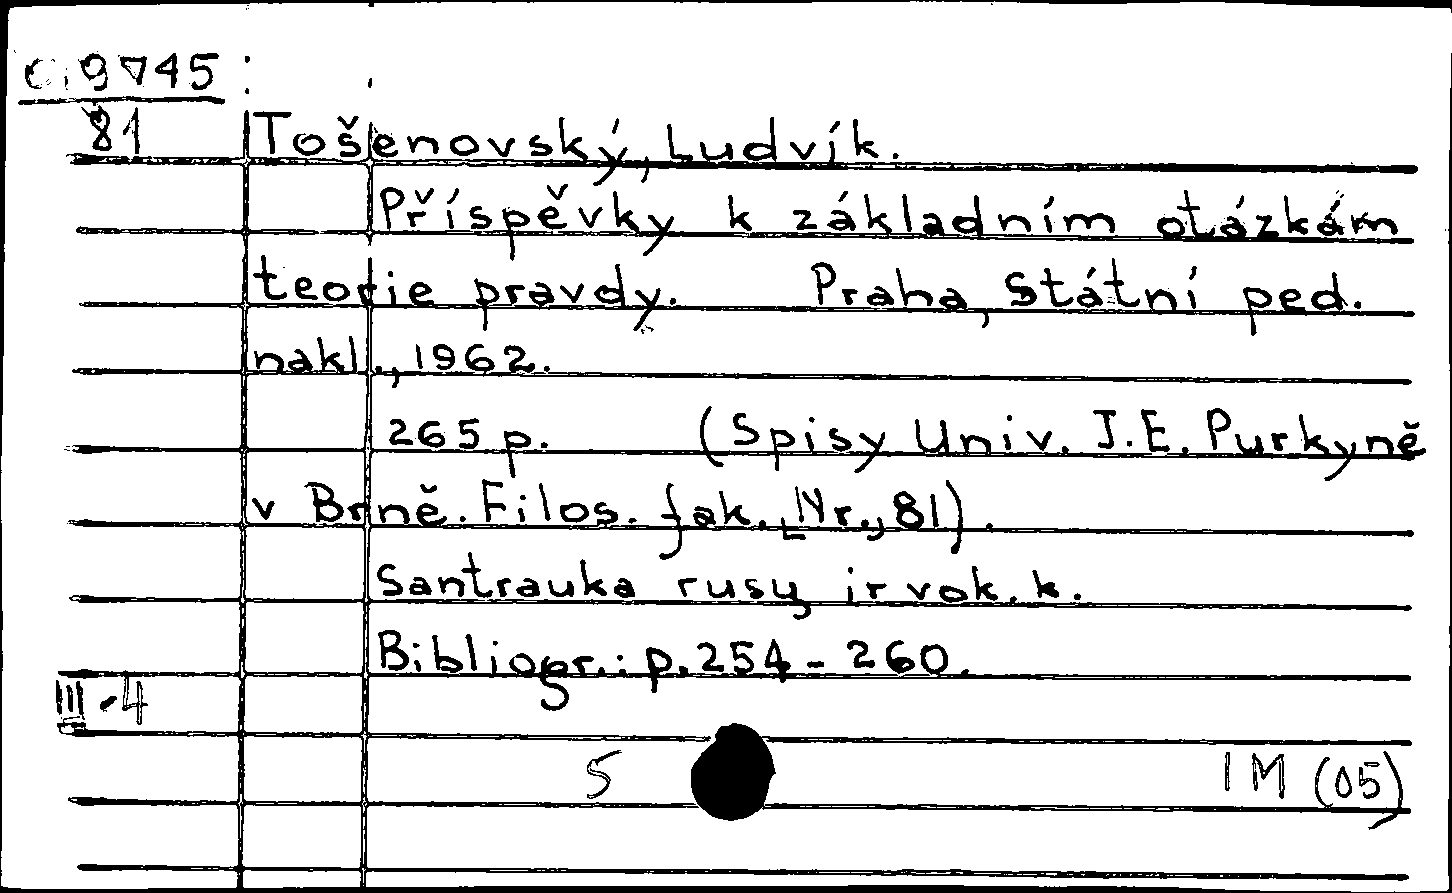 C 9745
81
Tošenovský, Ludvík.
Příspěvky k základním otázkám
teorie pravdy. Praha, Státní ped.
nakl., 1962.
265 p. (Spisy Univ. J. E. Purkyně
v Brně. Filos. fak., Nr., 81).
Santrauka rusų ir vok. k.
Bibliogr.: p. 254-260.
III-4
5 1M (05)